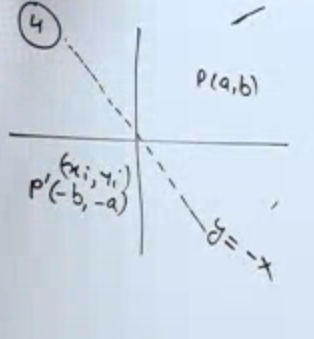 4
P(a,b)
(xi, yi)
P'(-b, -a)
y = -x